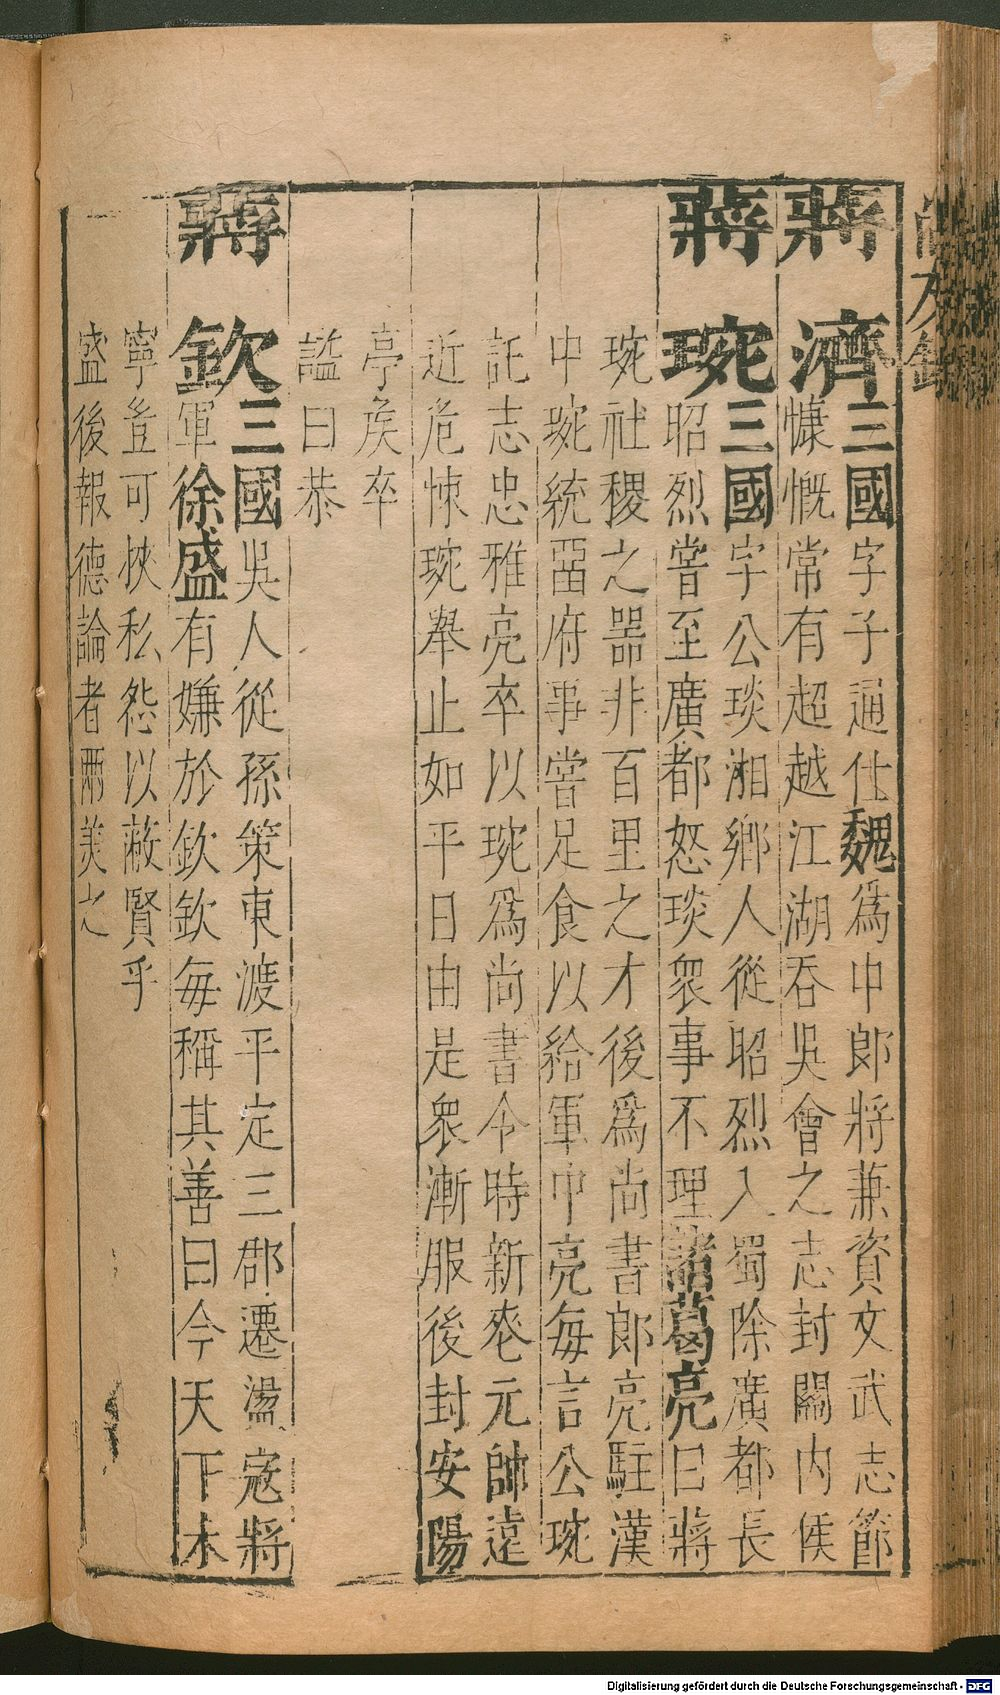 尚友錄
蔣濟三國字子通仕魏爲中郎將兼資文武志節
慷慨常有超越江湖吞吳會之志封關內侯
蔣琬三國字公琰湘鄉人從昭烈入蜀除廣都長
昭烈嘗至廣都怒琰衆事不理諸葛亮曰蔣
琬社稷之器非百里之才後爲尚書郎亮駐漢
中琬統畱府事嘗足食以給軍中亮每言公琬
託志忠雅亮卒以琬爲尚書令時新䘮元帥遠
近危悚琬舉止如平日由是衆漸服後封安陽
亭矦卒
謚曰恭
蔣欽三國吳人從孫策東渡平定三郡遷盪寇將
軍徐盛有嫌於欽欽每稱其善曰今天下未
寧豈可挾私怨以蔽賢乎
盛後報德論者兩美之
Digitalisierung gefördert durch die Deutsche Forschungsgemeinschaft - DFG